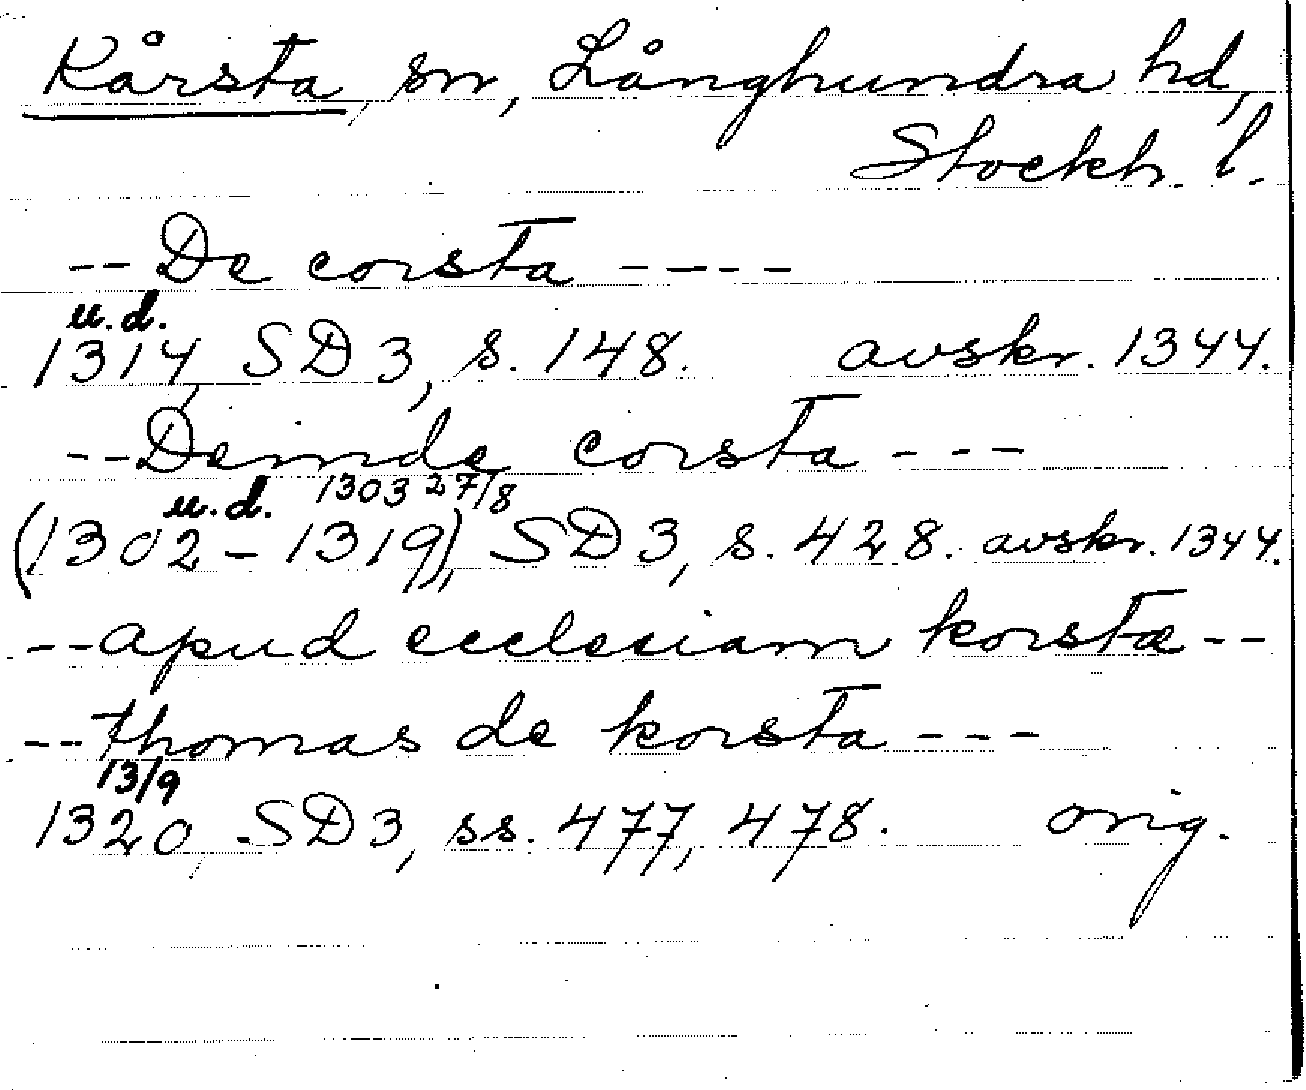 Kårsta, sn, Långhundra hd,
Stockh. l.
-- De corsta ----
u.d.
1314, SD 3, s. 148. avskr. 1344.
-- Deinde corsta ---
u.d. 1303 27/8
(1302-1319), SD 3, s. 428. avskr. 1344.
-- apud ecclesiam korsta --
-- thomas de korsta ---
13/9
1320, SD 3, ss. 477, 478. orig.